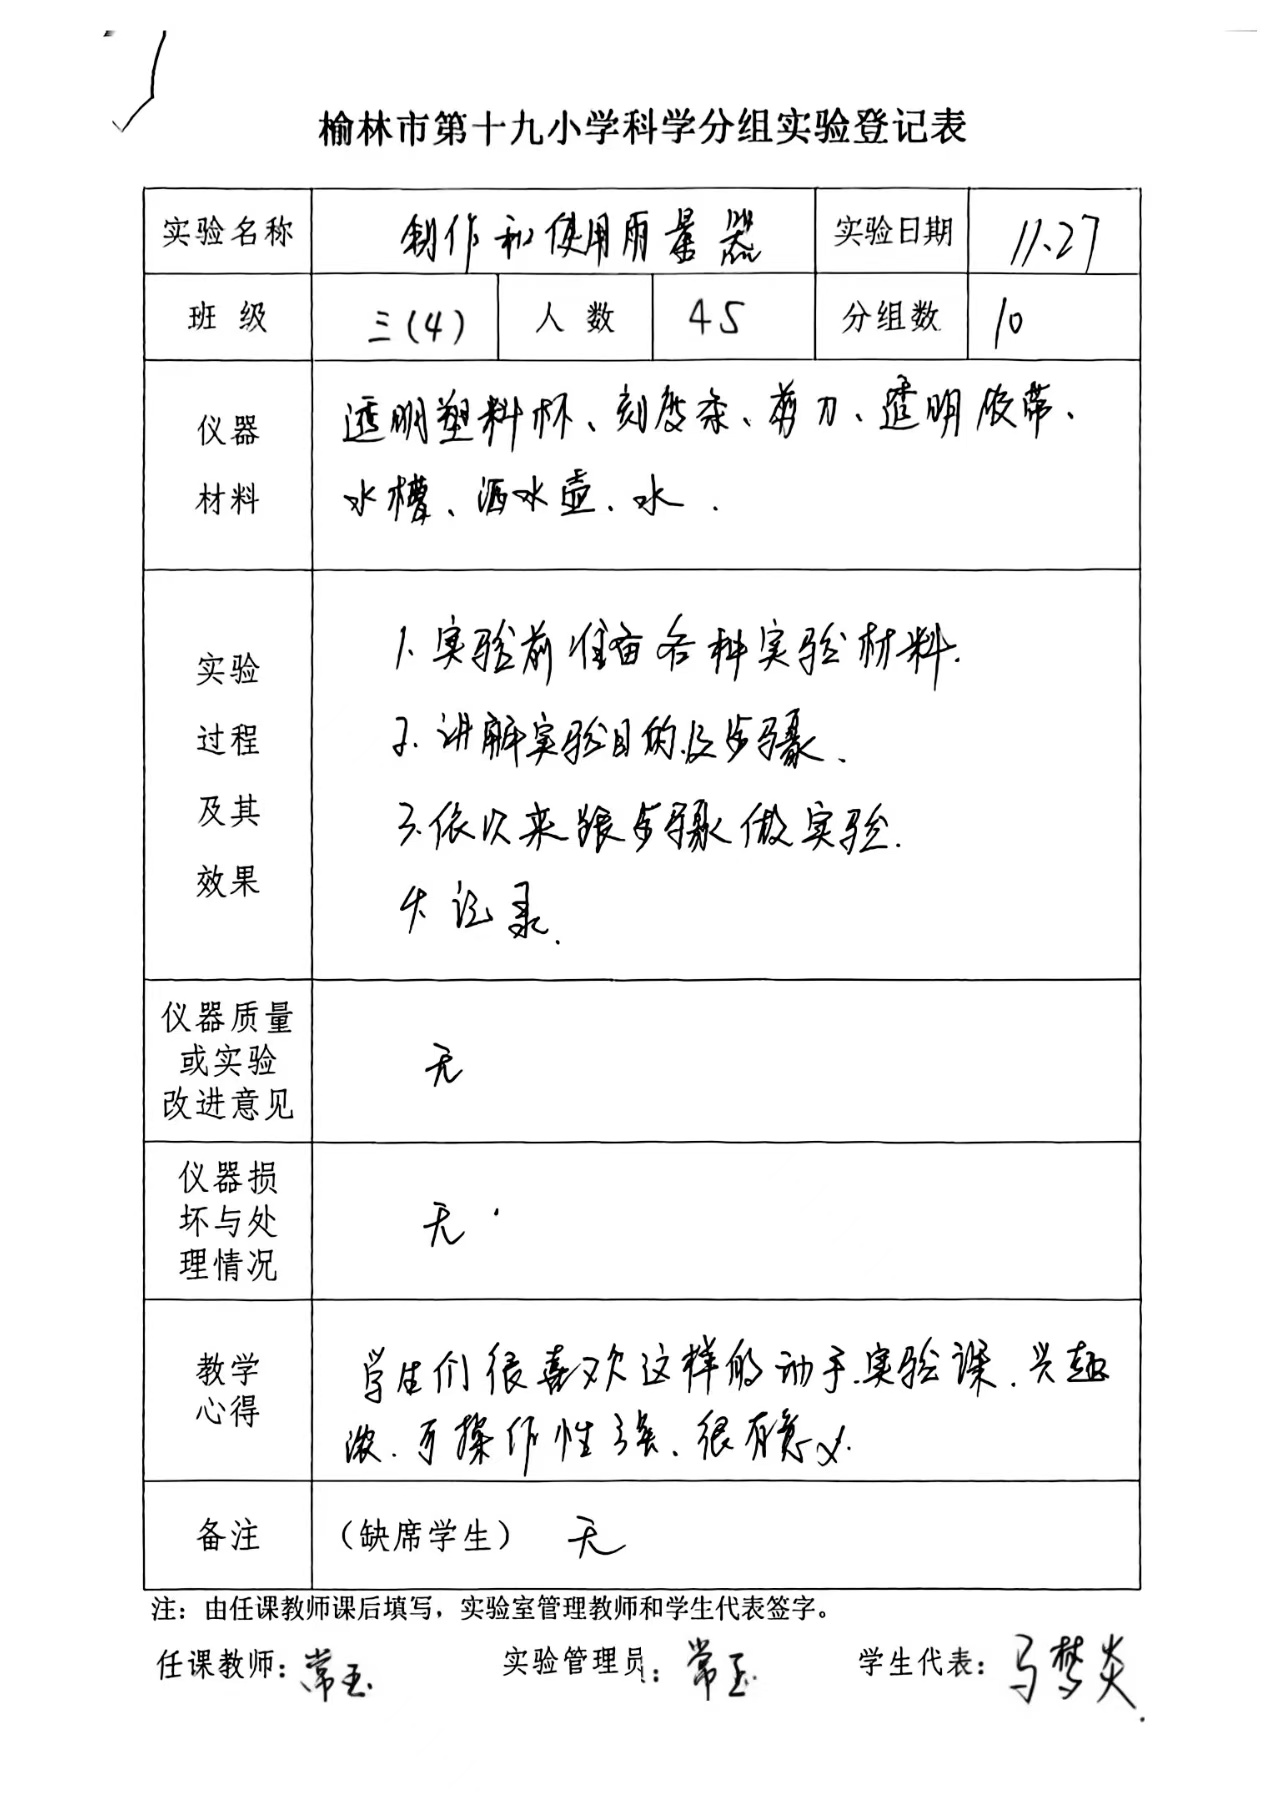 榆林市第十九小学科学分组实验登记表
实验名称 制作和使用雨量器 实验日期 11.27
班 级 三(4) 人 数 45 分组数 10
仪器
材料
透明塑料杯、刻度条、剪刀、透明胶带、
水槽、洒水壶、水.
实验
过程
及其
效果
1.实验前准备各种实验材料.
2.讲解实验目的及步骤.
3.依次来跟步骤做实验.
4.记录.
仪器质量
或实验
改进意见
无
仪器损
坏与处
理情况
无
教学
心得
学生们很喜欢这样的动手实验课.兴趣
浓.可操作性强、很有意义.
备注 (缺席学生) 无
注：由任课教师课后填写，实验室管理教师和学生代表签字。
任课教师：常玉 实验管理员：常玉 学生代表：马梦炎